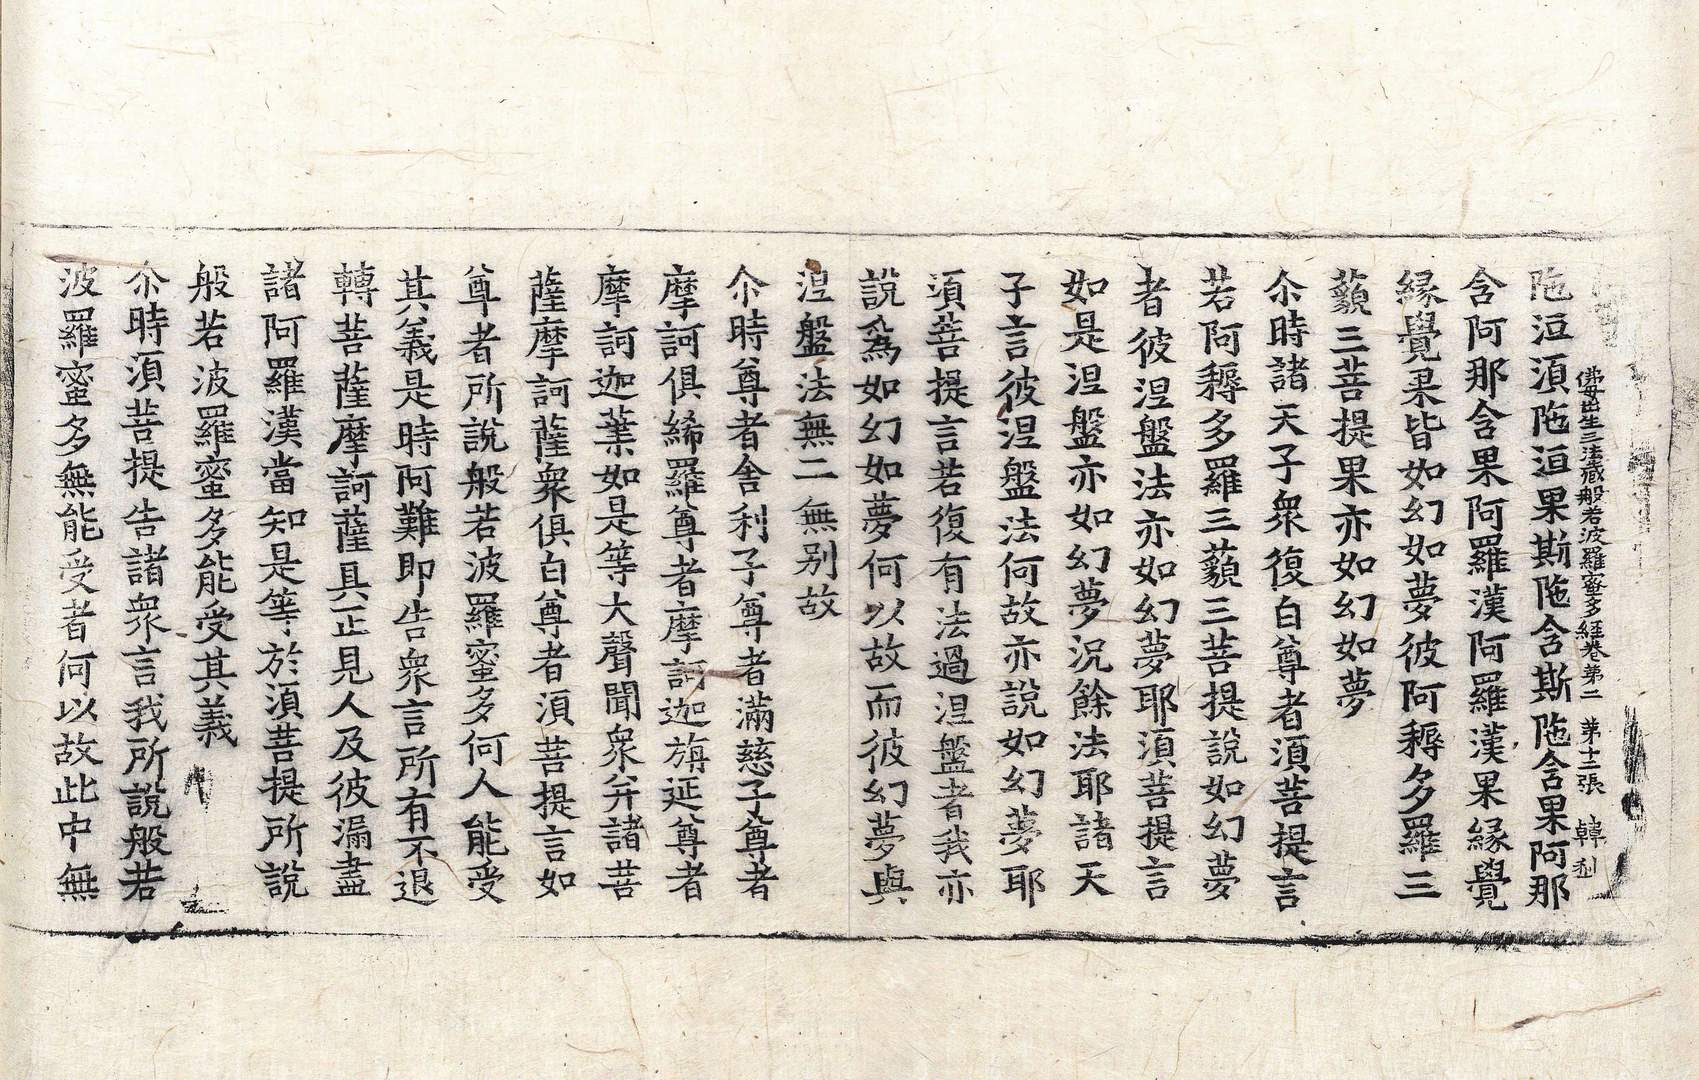 佛母出生三法藏般若波羅蜜多經卷第二　第十二張　韓
陁洹須陁洹果斯陁含斯陁含果阿那
含阿那含果阿羅漢阿羅漢果緣覺
緣覺果皆如幻如夢彼阿耨多羅三
藐三菩提果亦如幻如夢
尒時諸天子衆復白尊者須菩提言
若阿耨多羅三藐三菩提說如幻夢
者彼涅盤法亦如幻夢耶須菩提言
如是涅盤亦如幻夢況餘法耶諸天
子言彼涅盤法何故亦說如幻夢耶
須菩提言若復有法過涅盤者我亦
說爲如幻如夢何以故而彼幻夢與
涅盤法無二無別故
尒時尊者舍利子尊者滿慈子尊者
摩訶俱絺羅尊者摩訶迦旃延尊者
摩訶迦葉如是等大聲聞衆幷諸菩
薩摩訶薩衆俱白尊者須菩提言如
尊者所說般若波羅蜜多何人能受
其義是時阿難即告衆言所有不退
轉菩薩摩訶薩具正見人及彼漏盡
諸阿羅漢當知是等於須菩提所說
般若波羅蜜多能受其義
尒時須菩提告諸衆言我所說般若
波羅蜜多無能受者何以故此中無